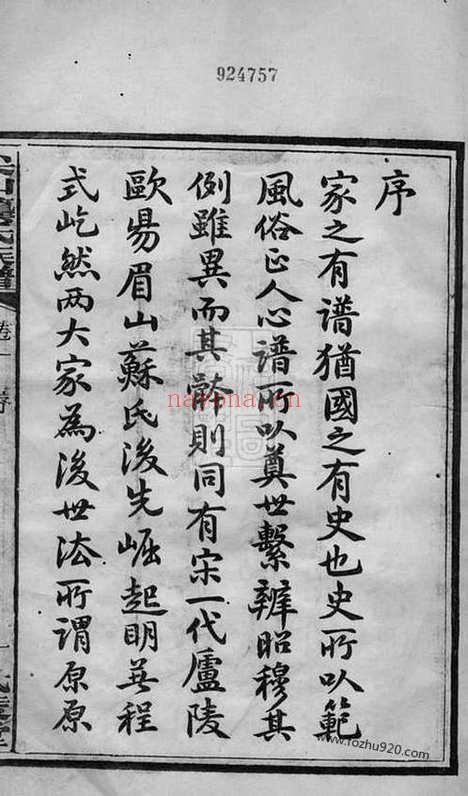 924757
序
家之有譜猶國之有史也史所以範
風俗正人心譜所以奠世繫辨昭穆其
例雖異而其骵則同有宋一代廬陵
歐昜眉山蘇氏後先崛起明程
式屹然两大家為後世法所謂原原
卷一 序
narona.cn
www.fozhu920.com